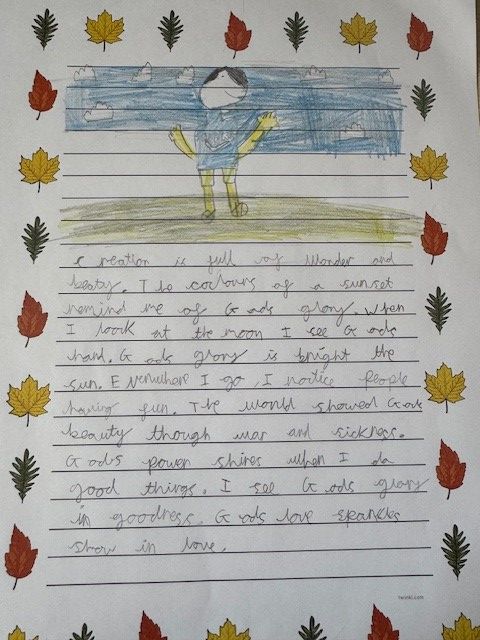 Creation is full of Wonder and
beaty. The coclours of a sunset
remind me of Gods glory. When
I look at the moon I see Gods
hand. Gods glory is bright the
sun. Everwhere I go, I notice People
having fun. The would showed Gods
beauty though war and sickness.
Gods power shines when I do
good things. I see Gods glory
in goodness. Gods love sparcles
show in love.
twinkl.com